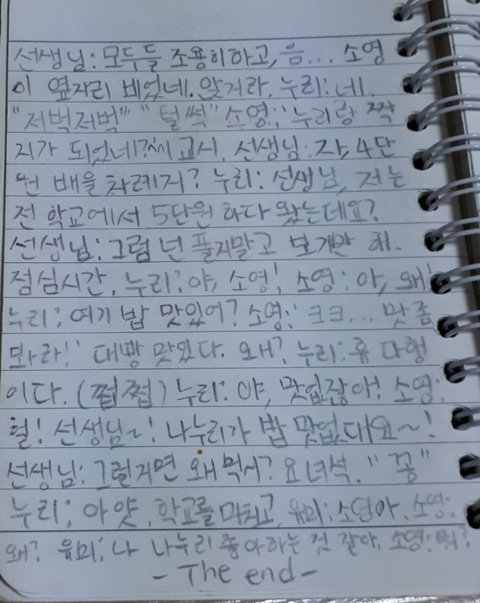 선생님: 모두들 조용히하고, 음... 소영
이 옆자리 비었네. 앉거라. 누리: 네.
"저벅저벅" "털썩" 소영: '누리랑 짝
지가 되었네?' 교시. 선생님: 자, 4단
원 배울 차례지? 누리: 선생님, 저는
전 학교에서 5단원 하다 왔는데요?
선생님: 그럼 넌 풀지말고 보기만 해.
점심시간. 누리: 야, 소영! 소영: 아, 왜!
누리: 여기 밥 맛있어? 소영: '크크... 맛 좀
봐라!' 대빵 맛있다. 왜? 누리: 휴 다행
이다. (쩝쩝) 누리: 야, 맛없잖아! 소영:
헐! 선생님~! 나누리가 밥 맛없대요~!
선생님: 그럴거면 왜 먹어? 요녀석. "꽁"
누리: 아얏. 학교를 마치고 유미: 소영아. 소영:
왜? 유미: 나 나누리 좋아하는 것 같아. 소영: 뭐?
- The end -